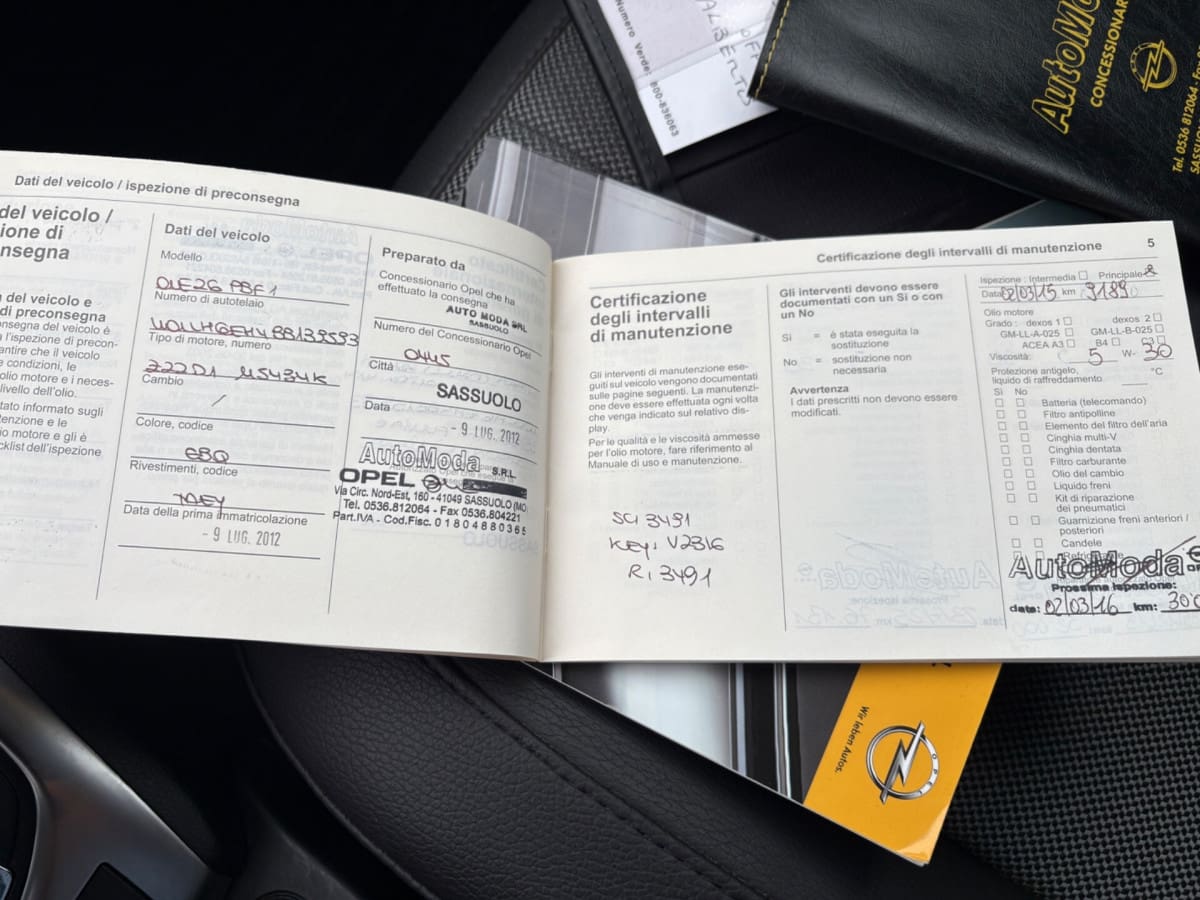 Numero Verde: 800-836063
AutoMo
CONCESSIONAR
Tel. 0536 812064
Dati del veicolo / ispezione di preconsegna
del veicolo /
ione di
nsegna
a del veicolo e
di preconsegna
nsegna del veicolo è
a l'ispezione di precon-
antire che il veicolo
e condizioni, le
olio motore e i neces-
livello dell'olio.
tato informato sugli
tenzione e le
io motore e gli è
cklist dell'ispezione
Dati del veicolo
Modello
Numero di autotelaio
Tipo di motore, numero
Cambio
/
Colore, codice
Rivestimenti, codice
Data della prima immatricolazione
- 9 LUG. 2012
Preparato da
Concessionario Opel che ha
effettuato la consegna
AUTO MODA SRL
SASSUOLO
Numero del Concessionario Opel
0445
Città
SASSUOLO
Data
- 9 LUG. 2012
AutoModa S.R.L.
OPEL
Via Circ. Nord-Est, 160 - 41049 SASSUOLO (MO
Tel. 0536.812064 - Fax 0536.804221
Part.IVA - Cod.Fisc. 0 1 8 0 4 8 8 0 3 6 5
Certificazione degli intervalli di manutenzione 5
Certificazione
degli intervalli
di manutenzione
Gli interventi di manutenzione ese-
guiti sul veicolo vengono documentati
sulle pagine seguenti. La manutenzi-
one deve essere effettuata ogni volta
che venga indicato sul relativo dis-
play.
Per le qualità e le viscosità ammesse
per l'olio motore, fare riferimento al
Manuale di uso e manutenzione.
SCI 3491
KEY: V2316
R: 3491
Gli interventi devono essere
documentati con un Sì o con
un No
Sì = è stata eseguita la
sostituzione
No = sostituzione non
necessaria
Avvertenza
I dati prescritti non devono essere
modificati.
Ispezione : Intermedia Principale
Data 02/03/15 km 9189
Olio motore
Grado : dexos 1 dexos 2
GM-LL-A-025 GM-LL-B-025
ACEA A3 B4 C3
Viscosità: 5 W- 30
Protezione antigelo,
liquido di raffreddamento °C
Sì No
Batteria (telecomando)
Filtro antipolline
Elemento del filtro dell'aria
Cinghia multi-V
Cinghia dentata
Filtro carburante
Olio del cambio
Liquido freni
Kit di riparazione
dei pneumatici
Guarnizione freni anteriori /
posteriori
Candele
AutoModa
Prossima ispezione:
data: 02/03/16 km: 300
Wir leben Autos.
OPEL